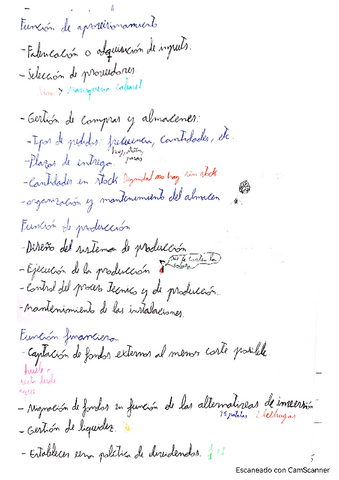 Función de aprovisionamiento
- Fabricación o adquisición de inputs.
- Selección de proveedores
- Gestión de compras y almacenes:
- Tipos de pedidos: frecuencia, cantidades, etc.
- Plazos de entrega
- Cantidades en stock Dignidad no hay sin stock
- organización y mantenimiento del almacen
Función de producción
- Diseño del sistema de producción
- Ejecución de la producción
- Control del proceso tecnico y de producción.
- mantenimiento de las instalaciones.
Función financiera
- Captación de fondos externos al menor coste posible.
- Asignación de fondos en función de las alternativas de inversión
2 lechugas
- Gestión de liquidez.
- Establecer una política de dividendos.
5
Escaneado con CamScanner